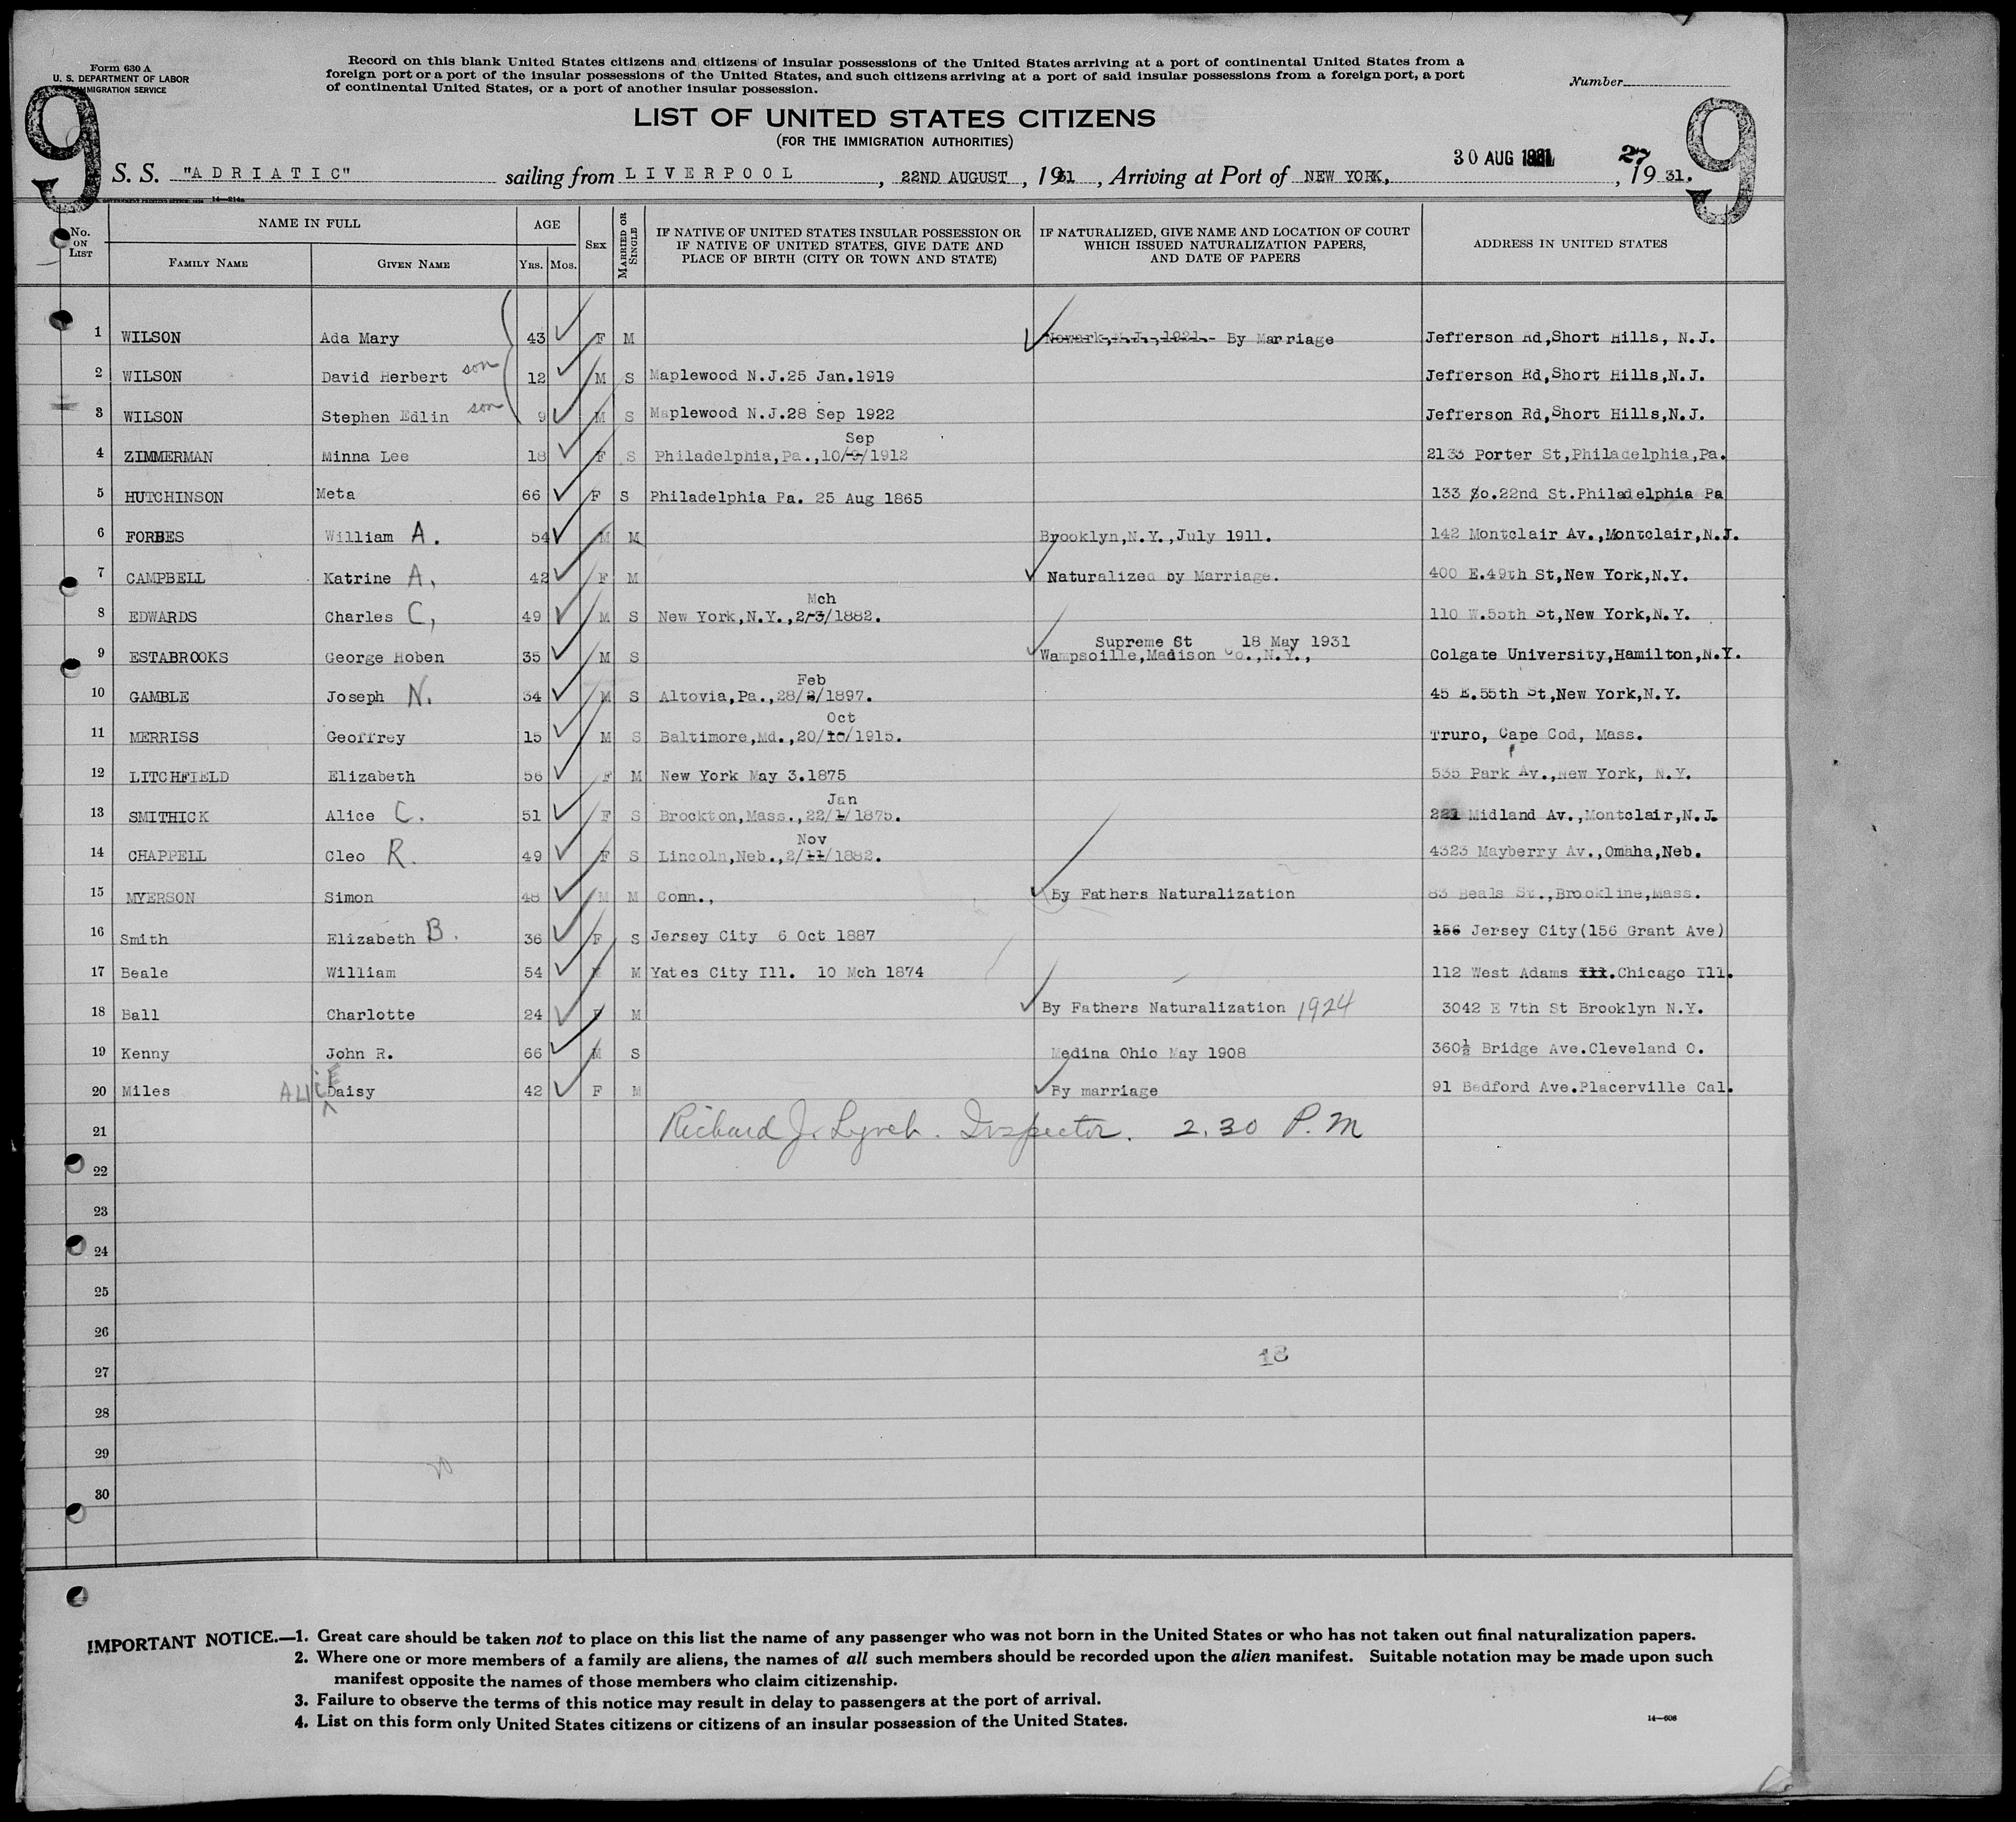 Form 630 A
U. S. DEPARTMENT OF LABOR
IMMIGRATION SERVICE
Record on this blank United States citizens and citizens of insular possessions of the United States arriving at a port of continental United States from a
foreign port or a port of the insular possessions of the United States, and such citizens arriving at a port of said insular possessions from a foreign port, a port
of continental United States, or a port of another insular possession.
Number
9 9
LIST OF UNITED STATES CITIZENS
(FOR THE IMMIGRATION AUTHORITIES)
30 AUG 1931 27
S. S. "ADRIATIC" sailing from LIVERPOOL, 22ND AUGUST, 1931, Arriving at Port of NEW YORK, , 19 31.
14—214a
No. ON LIST NAME IN FULL AGE SEX MARRIED OR SINGLE IF NATIVE OF UNITED STATES INSULAR POSSESSION OR IF NATIVE OF UNITED STATES, GIVE DATE AND PLACE OF BIRTH (CITY OR TOWN AND STATE) IF NATURALIZED, GIVE NAME AND LOCATION OF COURT WHICH ISSUED NATURALIZATION PAPERS, AND DATE OF PAPERS ADDRESS IN UNITED STATES
FAMILY NAME GIVEN NAME YRS. MOS.
1 WILSON Ada Mary 43 F M Newark, N.J., 1921.- By Marriage Jefferson Rd,Short Hills, N.J.
2 WILSON David Herbert son 12 M S Maplewood N.J.25 Jan.1919 Jefferson Rd,Short Hills,N.J.
3 WILSON Stephen Edlin son 9 M S Maplewood N.J.28 Sep 1922 Jefferson Rd,Short Hills,N.J.
Sep
4 ZIMMERMAN Minna Lee 18 F S Philadelphia,Pa.,10/9/1912 2133 Porter St,Philadelphia,Pa.
5 HUTCHINSON Meta 66 F S Philadelphia Pa. 25 Aug 1865 133 So.22nd St.Philadelphia Pa
6 FORBES William A. 54 M M Brooklyn,N.Y.,July 1911. 142 Montclair Av.,Montclair,N.J.
7 CAMPBELL Katrine A. 42 F M Naturalized by Marriage. 400 E.49th St,New York,N.Y.
Mch
8 EDWARDS Charles C. 49 M S New York,N.Y.,2/3/1882. 110 W.55th St,New York,N.Y.
Supreme Ct 18 May 1931
9 ESTABROOKS George Hoben 35 M S Wampsoille,Madison Co.,N.Y., Colgate University,Hamilton,N.Y.
Feb
10 GAMBLE Joseph N. 34 M S Altovia,Pa.,28/2/1897. 45 E.55th St,New York,N.Y.
Oct
11 MERRISS Geoffrey 15 M S Baltimore,Md.,20/10/1915. Truro, Cape Cod, Mass.
12 LITCHFIELD Elizabeth 56 F M New York May 3.1875 535 Park Av.,New York, N.Y.
Jan
13 SMITHICK Alice C. 51 F S Brockton,Mass.,22/1/1875. 221 Midland Av.,Montclair,N.J.
Nov
14 CHAPPELL Cleo R. 49 F S Lincoln,Neb.,2/11/1882. 4323 Mayberry Av.,Omaha,Neb.
15 MYERSON Simon 48 M M Conn., By Fathers Naturalization 83 Beals St.,Brookline,Mass.
16 Smith Elizabeth B. 36 F S Jersey City 6 Oct 1887 156 Jersey City(156 Grant Ave)
17 Beale William 54 M Yates City Ill. 10 Mch 1874 112 West Adams Ill.Chicago Ill.
18 Ball Charlotte 24 F M By Fathers Naturalization 1924 3042 E 7th St Brooklyn N.Y.
19 Kenny John R. 66 M S Medina Ohio May 1908 360½ Bridge Ave.Cleveland O.
20 Miles ALICE Daisy 42 F M By marriage 91 Bedford Ave.Placerville Cal.
21 Richard J. Lynch. Inspector. 2.30 P.M
22
23
24
25
26
27
18
28
29
20
30
IMPORTANT NOTICE.—1. Great care should be taken not to place on this list the name of any passenger who was not born in the United States or who has not taken out final naturalization papers.
2. Where one or more members of a family are aliens, the names of all such members should be recorded upon the alien manifest. Suitable notation may be made upon such
manifest opposite the names of those members who claim citizenship.
3. Failure to observe the terms of this notice may result in delay to passengers at the port of arrival.
4. List on this form only United States citizens or citizens of an insular possession of the United States.
14—608